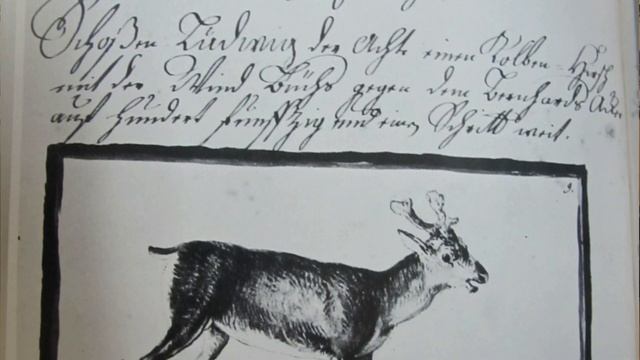 Schoßen Ludwig der Achte einen Kolben-Hirsch
mit der Wind Büchs gegen dem Bernhards Acker
auf hundert fünffzig und einen Schritt weit.
9.